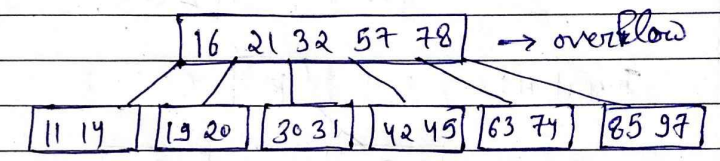 16 21 32 57 78 → overflow
11 14 19 20 30 31 42 45 63 74 85 97